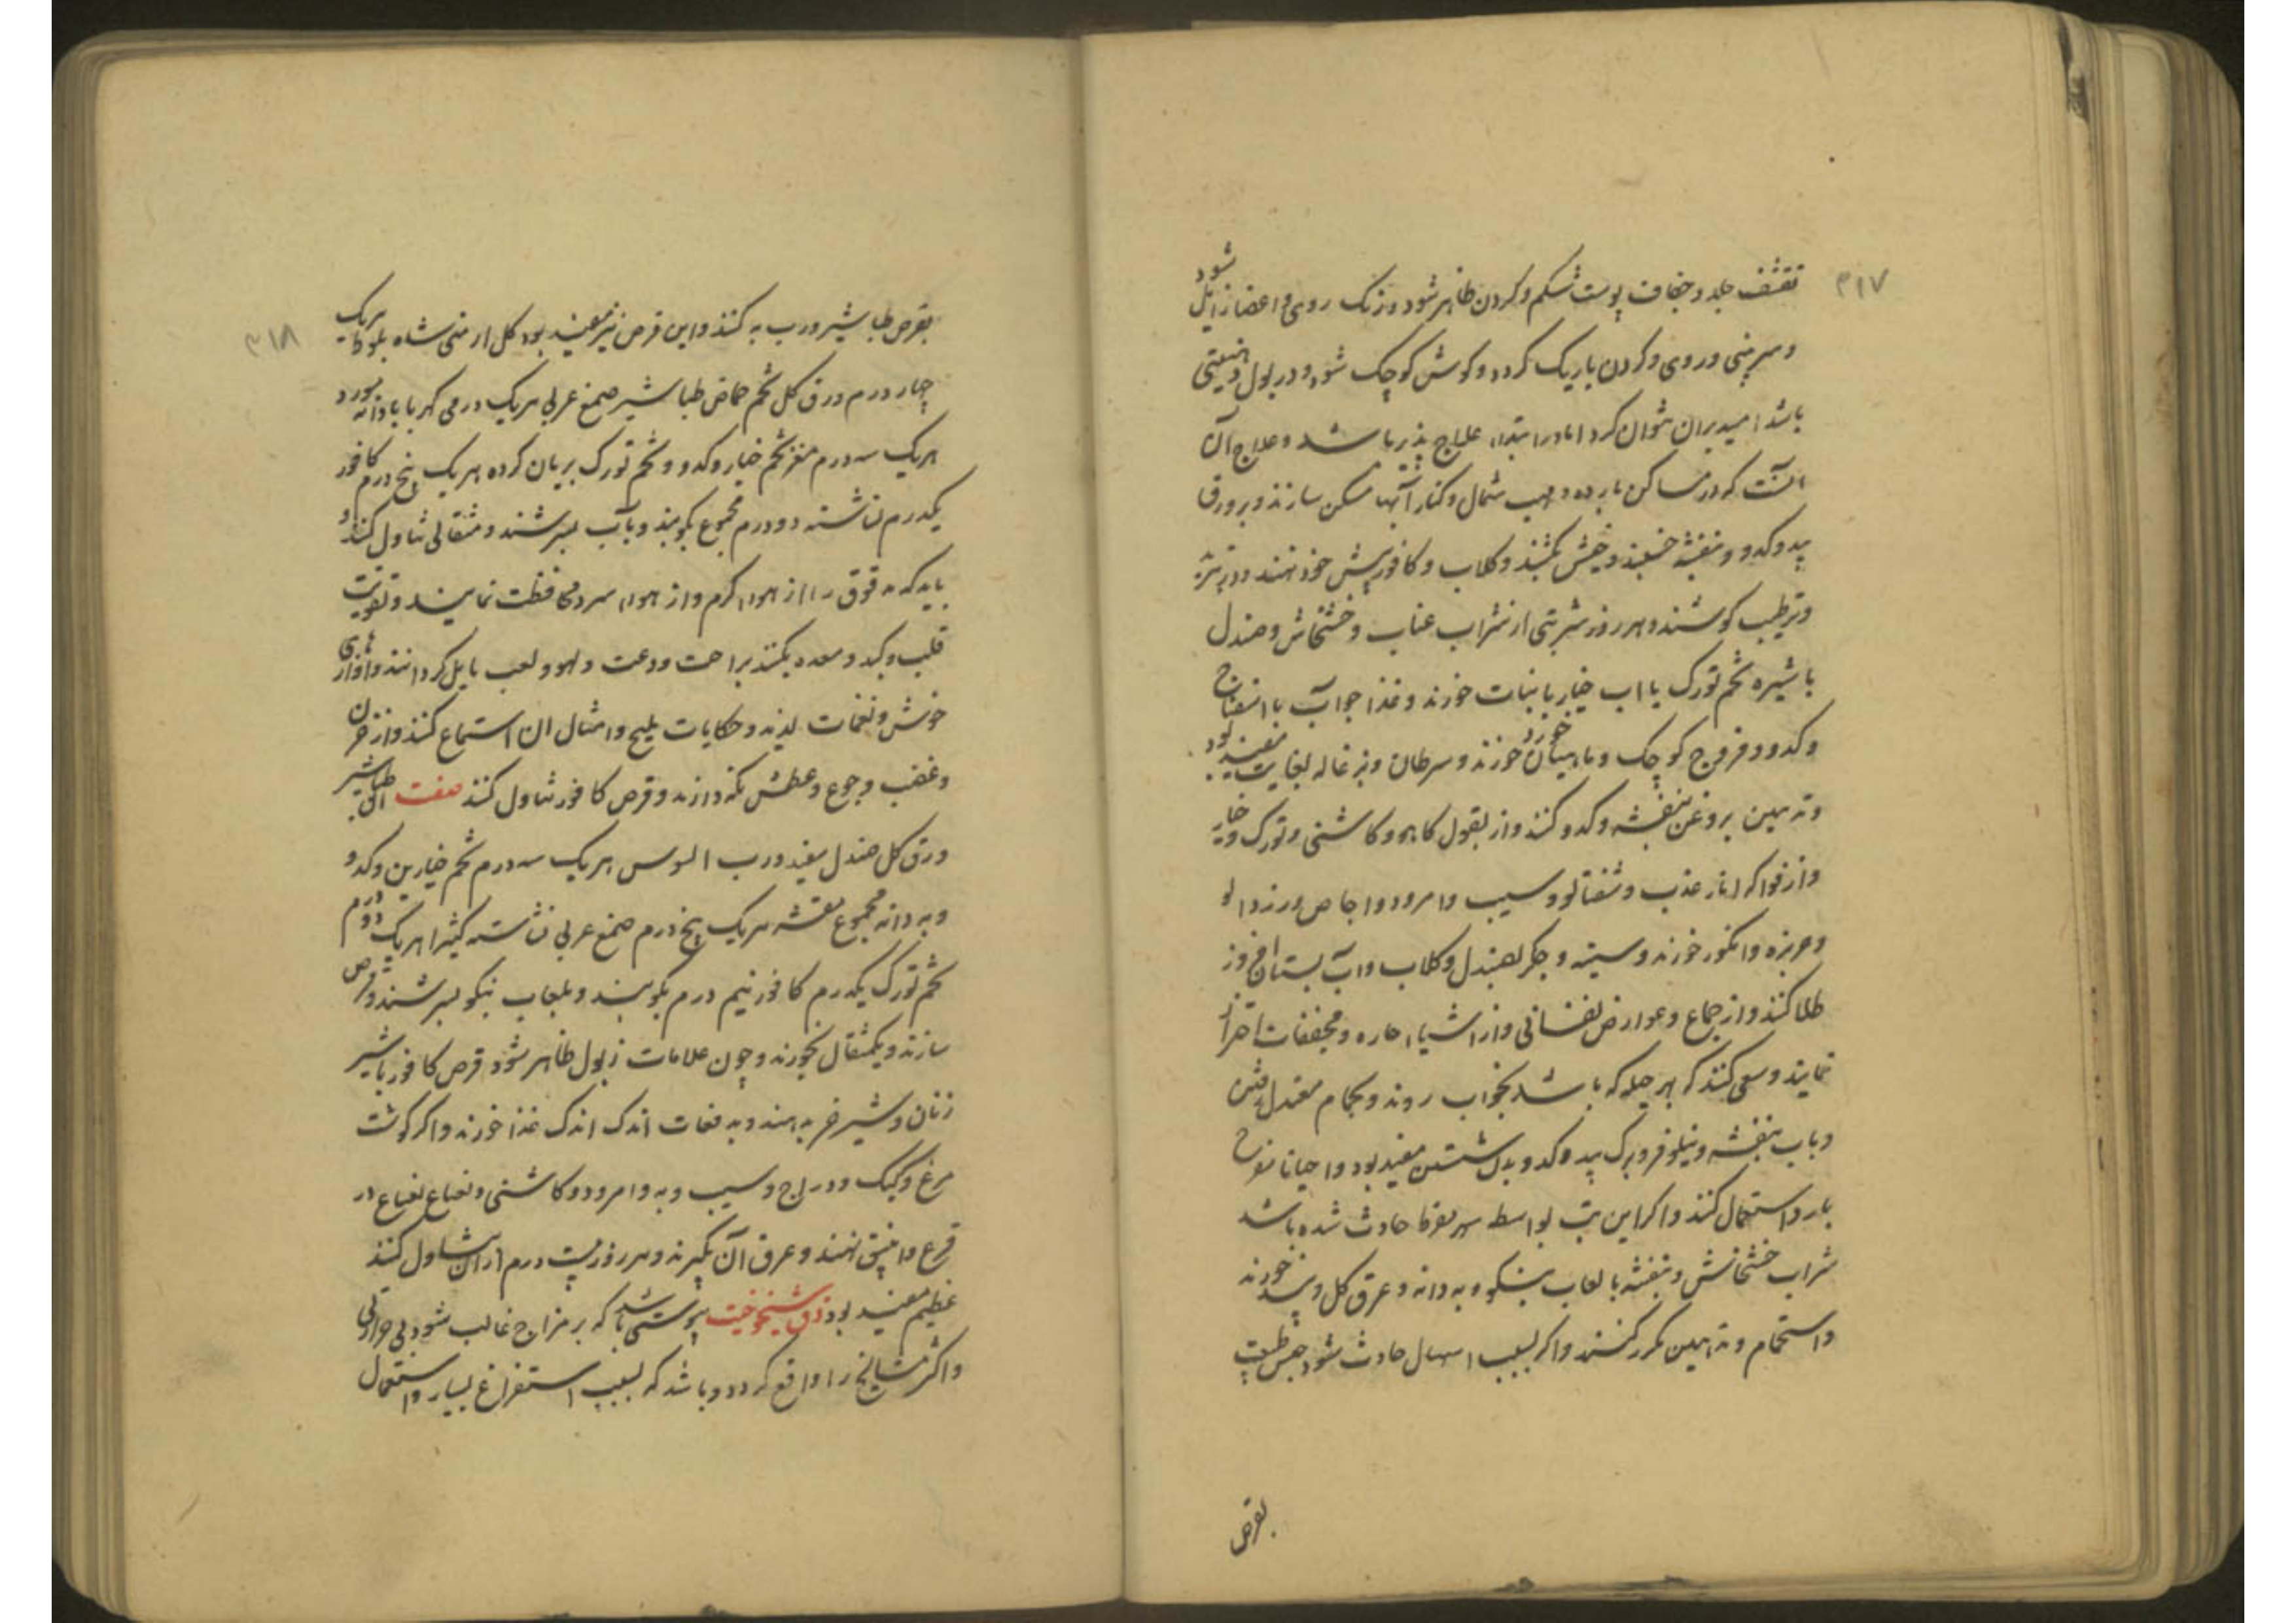 ۳۱۷
تقشف جلد و جفاف پوست شکم و کردن ظاهر شود و رنک روی و اعضا زایل شود
و سر بینی و روی و کردن باریک کردد و کوش کوچک شود و در بول دهنیتی
باشد امید بران نتوان کرد اما در ابتداء علاج پذیر باشد و علاج آن
انست که در مساکن بارده و مهب شمال و کنار آبها مسکن سازند و بر ورق
بید و کدو و بنفشه خسبند و خیش بکشند و کلاب و کافور پیش خود نهند و در تبرید
و ترطیب کوشند و هر روز شربتی از شراب عناب و خشخاش و صندل
با شیره تخم تورک یا اب خیار با نبات خورند و غذا جو آب با اسفناخ
و کدو و فروج کوچک و ماهیان خورد خورند و سرطان و بزغاله بغایت مفید بود
و تدهین بروغن بنفشه و کدو کنند و از بقول کاهو و کاشنی و تورک و خیار
و از فواکه انار عذب و شفتالو و سیب و امرود و اجاص و زردالو
و خربزه و انکور خورند و سینه و جکر بصندل و کلاب و اب بستان افروز
طلا کنند و از جماع و عوارض نفسانی و از اشیاء حاره و مجففات احتراز
نمایند و سعی کنند که بهر حیله که باشد بخواب روند و بحمام معتدل رفتن
و باب بنفشه و نیلوفر و برک بید و کدو بدن شستن مفید بود و احیانا
بارد استعمال کنند و اکر این تب بواسطه سهر مفرط حادث شده باشد
شراب خشخاش و بنفشه با لعاب بنکو و به دانه و عرق کل و بید خورند
و استحمام و تدهین مکرر کنند و اکر بسبب اسهال حادث شود حبس طبیعت
بقرص
۳۱۸
بقرص طباشیر و رب به کنند و این قرص نیز مفید بود کل ارمنی شاه بلوط هریک
چهار درم ورق کل تخم حماض طباشیر صمغ عربی هریک درمی کهربا بادانه مورد
هریک سه درم مغز تخم خیار و کدو و تخم تورک بریان کرده هریک پنج درم کافور
یکدرم نشاسته دو درم مجموع بکوبند و بآب بسرشند و مثقالی تناول کنند و
باید که مدقوق را از هواء کرم و از هواء سرد محافظت نمایند و تقویت
قلب و کبد و معده بکنند براحت و دعت و لهو و لعب مایل کردانند و آوازهای
خوش و نغمات لذیذ و حکایات ملیح و امثال ان استماع کنند و از حزن
و غضب و جوع و عطش نکه دارند و قرص کافور تناول کنند صفت ان طباشیر
ورق کل صندل سفید و رب السوس هریک سه درم تخم خیارین و کدو
و به دانه مجموع مقشر هریک پنج درم صمغ عربی نشاسته کثیرا هریک دو درم
تخم تورک یکدرم کافور نیم درم بکوبند و بلعاب بنکو بسرشند و قرص
سازند و یکمثقال بخورند و چون علامات ذبول ظاهر شود قرص کافور با شیر
زنان و شیر خر بدهند و بدفعات اندک اندک غذا خورند و اکر کوشت
مرغ و کبک و دراج و سیب و به و امرود و کاشنی و نعناع در
قرع و انبیق نهند و عرق آن بکیرند و هر روز بیست درم از ان تناول کنند
عظیم مفید بود دق شیخوخیت یبوستی باشد که بر مزاج غالب شود بی حرارتی
و اکثر مشایخ را واقع کردد و باشد که بسبب استفراغ بسیار و استعمال